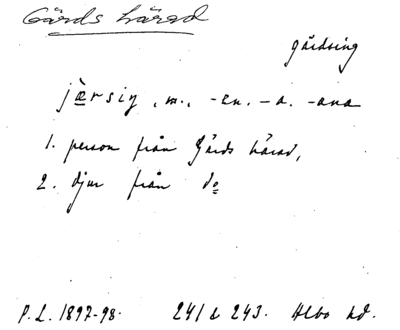 Gärds härad
gärdsing
jæ̀rsiŋ, m., -en. -a. -ana
1. person från Gärds härad,
2. djur från do
P.L. 1897-98. 241 & 243. Albo hd.